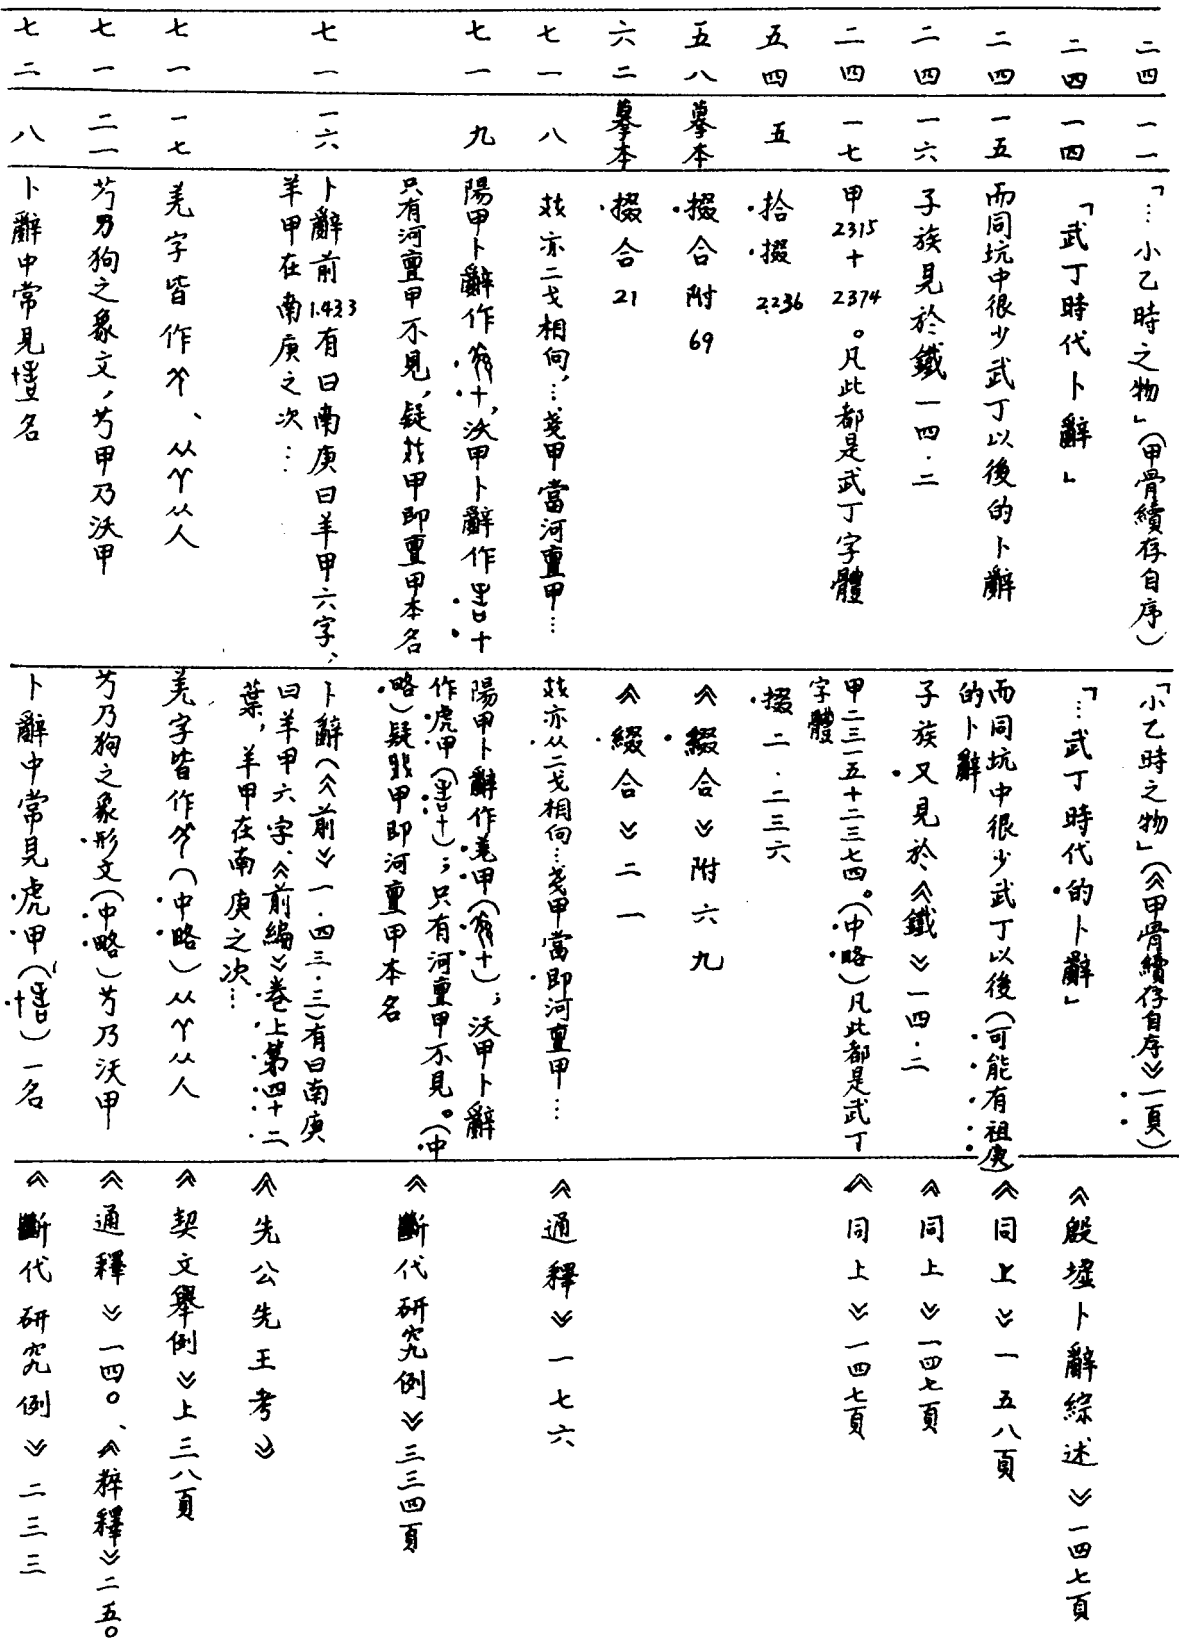 二四 一一 「…小乙時之物」(甲骨續存自序) 「小乙時之物」(《甲骨續存自序》一頁)
二四 一四 「武丁時代卜辭」 「…武丁時代的卜辭」 《殷墟卜辭綜述》一四七頁
二四 一五 而同坑中很少武丁以後的卜辭 而同坑中很少武丁以後(可能有祖庚)的卜辭 《同上》一五八頁
二四 一六 子族見於鐵一四.二 子族又見於《鐵》一四.二 《同上》一四七頁
二四 一七 甲2315+2374。凡此都是武丁字體 甲二三一五十二三七四。(中略)凡此都是武丁字體 《同上》一四七頁
五四 五 拾掇2.236 掇二.二三六
五八 摹本 掇合附69 《綴合》附六九
六二 摹本 掇合21 《綴合》二一
七一 八 亦二戈相向,…戔甲當河亶甲… 亦从二戈相向…戔甲當即河亶甲… 《通釋》一七六
七一 九 陽甲卜辭作十,沃甲卜辭作十
只有河亶甲不見,疑甲即亶甲本名
陽甲卜辭作羌甲(十);沃甲卜辭
作虎甲(十);只有河亶甲不見。(中
略)疑甲即河亶甲本名 《斷代研究例》三三四頁
七一 一六 卜辭前1.43.3有曰南庚曰羊甲六字,
羊甲在南庚之次…
卜辭(《前》一.四三.三)有曰南庚
曰羊甲六字.《前編》卷上第四十二
葉,羊甲在南庚之次… 《先公先王考》
七一 一七 羌字皆作、从从人 羌字皆作(中略)从从人 《契文舉例》上三八頁
七一 二一 芍乃狗之象文,芍甲乃沃甲 芍乃狗之象形文(中略)芍乃沃甲 《通釋》一四〇、《粹釋》二五〇
七二 八 卜辭中常見名 卜辭中常見虎甲()一名 《斷代研究例》二三三